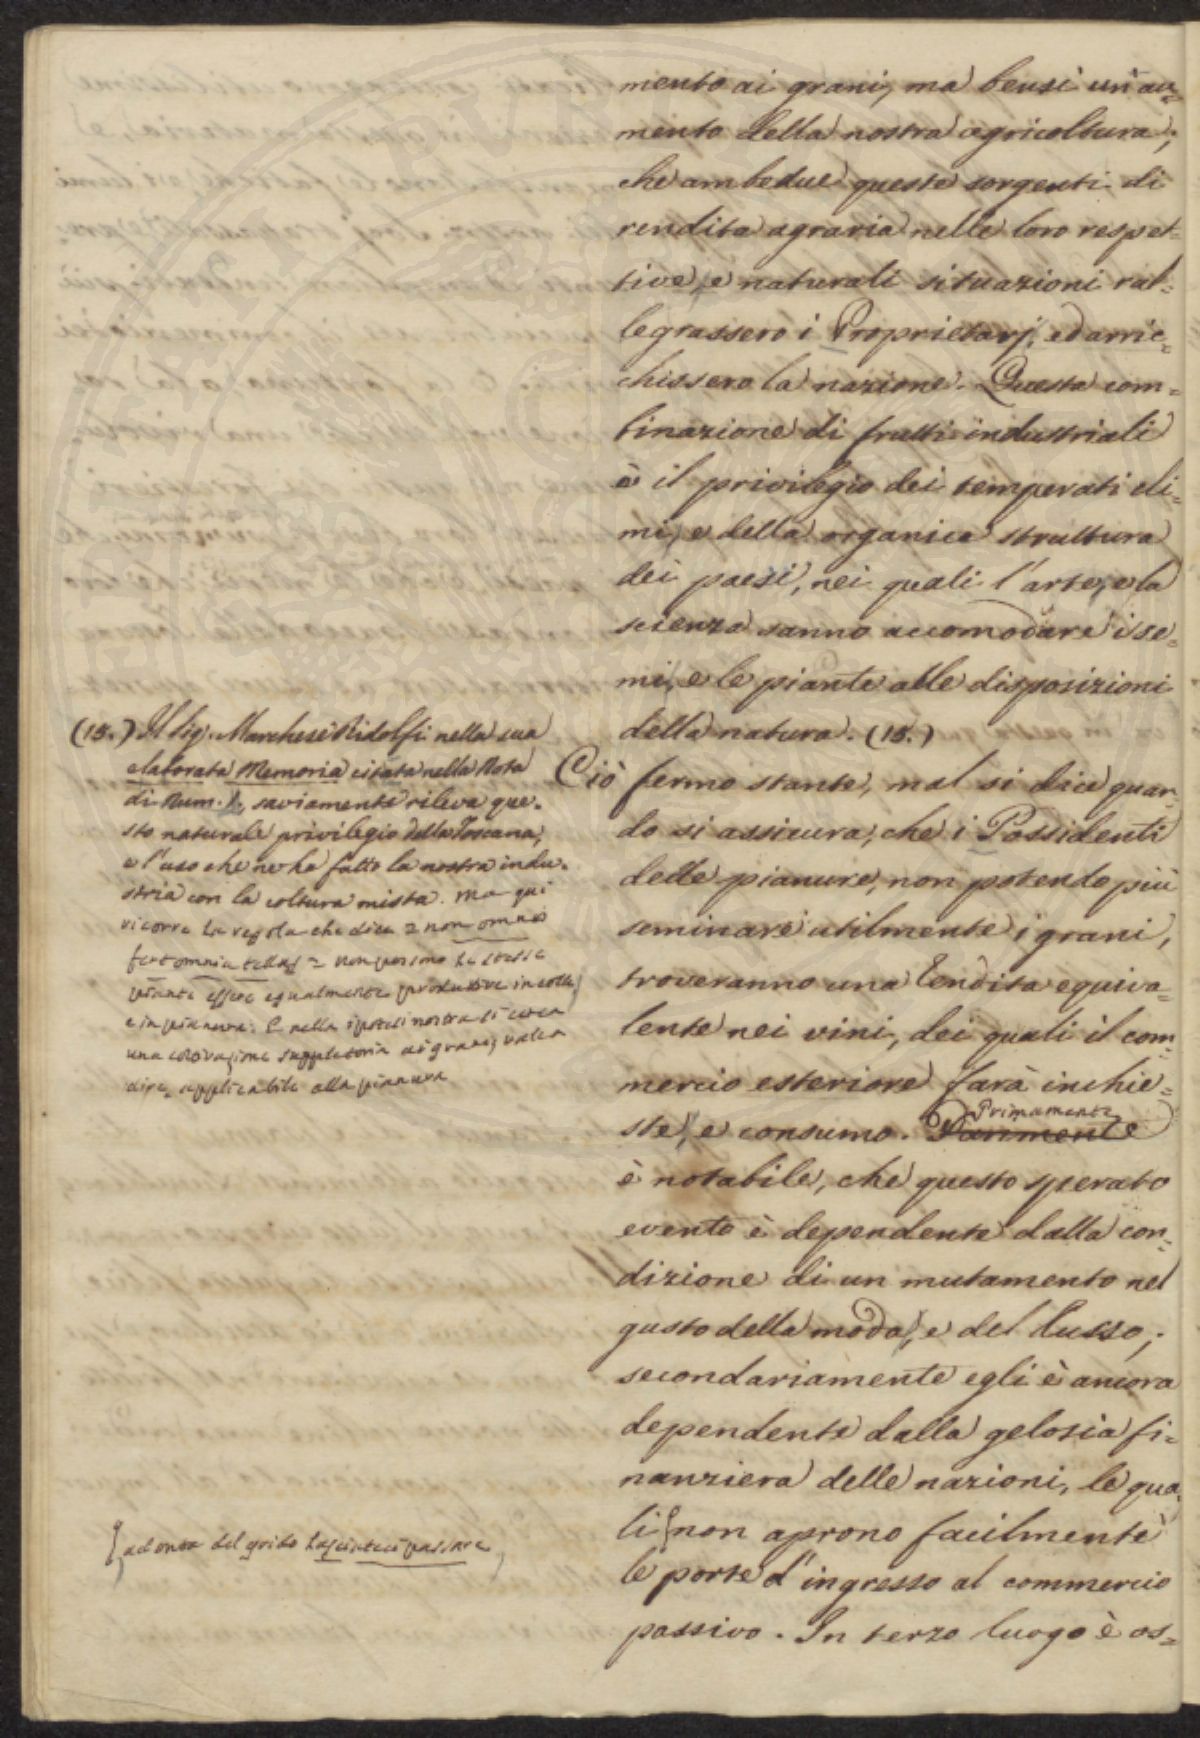 mento ai grani, ma bensì un au=
mento della nostra agricoltura;
che ambedue queste sorgenti di
rendita agraria nelle loro respet=
tive, e naturali situazioni ral=
legrassero i Proprietarj, ed arric=
chissero la nazione. Questa com=
binazione di frutti industriali
è il privilegio dei temperati cli=
mi, e della organica struttura
dei paesi, nei quali l'arte, e la
scienza sanno accomodare i se=
mi, e le piante alle disposizioni
della natura. (15.)
Ciò fermo stante, mal si dice quan=
do si assicura, che i Possidenti
delle pianure, non potendo più
seminare utilmente i grani,
troveranno una rendita equiva=
lente nei vini, dei quali il com=
mercio esteriore farà inchie=
ste, e consumo. Primamente
è notabile, che questo sperato
evento è dependente dalla con=
dizione di un mutamento nel
gusto della moda, e del lusso;
secondariamente egli è ancora
dependente dalla gelosia fi=
nanziera delle nazioni, le qua=
li non aprono facilmente
le porte d'ingresso al commercio
passivo. In terzo luogo è os=
(15.) Il Sig. Marchese Ridolfi nella sua
elaborata Memoria citata nella Nota
di Num. 1, saviamente rileva que=
sto naturale privilegio della Toscana,
e l'uso che ne ha fatto la nostra indu=
stria con la coltura mista. Ma qui
ricorre la regola che dice = non omnis
fert omnia tellus = non possono le stesse
piante essere egualmente produttive in colle,
e in pianura. E nella ipotesi nostra si cerca
una coltivazione suppletoria ai grani, vale a
dire, applicabile alla pianura
ad onta del grido lasciateci passare,